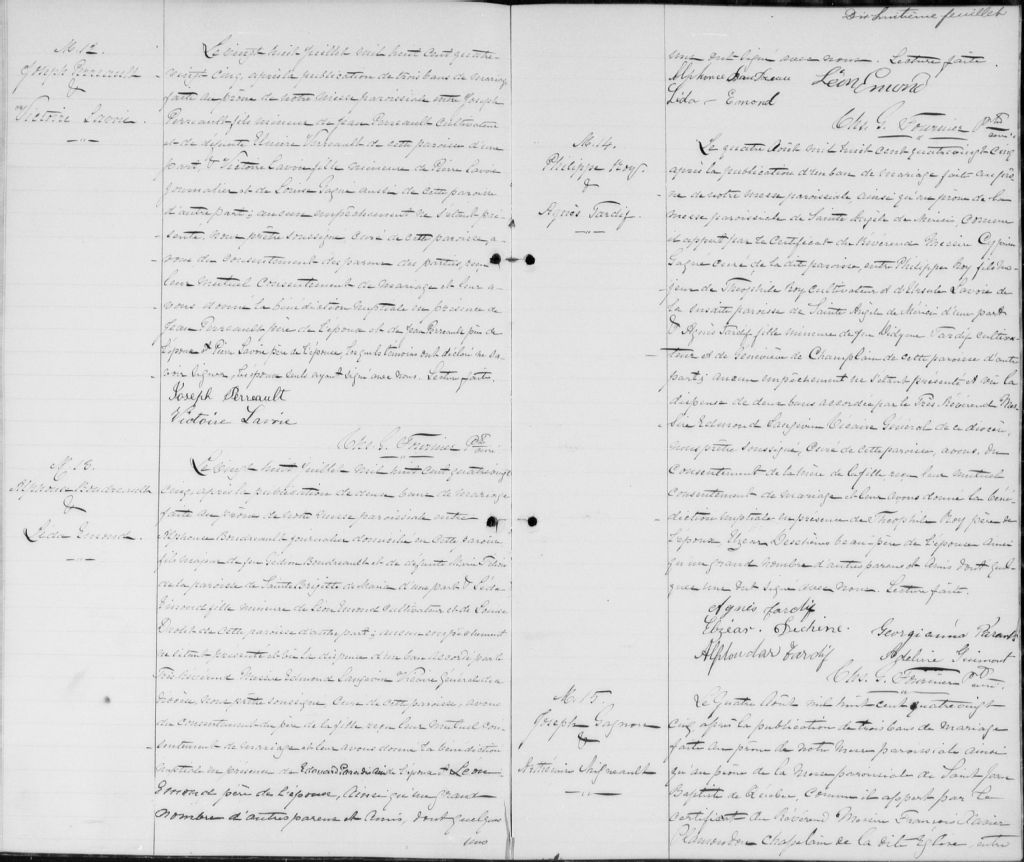 M. 12.
Joseph Perreault
&
Victoire Lavoie.
Le vingt huit Juillet mil huit cent quatre
vingt cinq, après la publication de trois bans de mariage
faite au prône de notre messe paroissiale entre Joseph
Perreault fils mineur de Jean Perreault cultivateur
et de défunte Perreault de cette paroisse d'une
part, & Victoire Lavoie fille mineure de Pierre Lavoie
journalier et de Louise Gagné aussi de cette paroisse
d'autre part; aucun empêchement ne s'étant pré-
senté, nous prêtre soussigné curé de cette paroisse, a-
vons du consentement des parens des parties, reçu
leur mutuel consentement de mariage et leur a-
vons donné la bénédiction nuptiale en présence de
Jean Perreault père de l'époux et de Jean Perreault
l'époux & Pierre Lavoie père de l'épouse, lesquels témoins ont déclaré ne sa-
voir signer, les époux seuls ayant signé avec nous. Lecture faite.
Joseph Perreault
Victoire Lavoie
Chs. G. Fournier Ptre
curé
M. 13.
Alphonse Boudreault
&
Léda Emond.
Le vingt huit Juillet mil huit cent quatre vingt
cinq, après la publication de deux bans de mariage
faite au prône de notre messe paroissiale entre
Alphonse Boudreault journalier domicilié en cette paroisse
fils majeur de feu Gédéon Boudreault et de défunte Marie
de la paroisse de Sainte Brigitte de Maria d'une part & Léda
Emond fille mineure de Léon Emond cultivateur et de Louise
Drolet de cette paroisse d'autre part; aucun empêchement
ne s'étant présenté et vu la dispense d'un ban accordé par le
Très Révérend Messire Edmond Langevin Vicaire Général de ce
diocèse, nous prêtre soussigné, Curé de cette paroisse, avons
du consentement du père de la fille reçu leur mutuel con-
sentement de mariage et leur avons donné la bénédiction
nuptiale en présence de Edouard Paradis de l'époux & Léon
Emond père de l'épouse, ainsi qu'un grand
nombre d'autres parens et amis, dont quelques
uns
Dix huitième feuillet
uns ont signé avec nous. Lecture faite.
Alphonse Boudreau Léon Emond
Lida Emond
Chs. G. Fournier Ptre
curé
M. 14.
Philippe Roy.
&
Agnès Tardif.
Le quatre Août mil huit cent quatre vingt cinq
après la publication d'un ban de mariage faite au prô-
ne de notre messe paroissiale ainsi qu'au prône de la
messe paroissiale de Sainte Angèle de Mérici, comme
il appert par le certificat du Révérend Messire Cyprien
Gagné curé de la dite paroisse, entre Philippe Roy fils ma-
jeur de Théophile Roy cultivateur & d'Ursule Lavoie de
la susdite paroisse de Sainte Angèle de Mérici d'une part
& Agnès Tardif fille mineure de feu Didyme Tardif cultiva-
teur et de Geneviève de Champlain de cette paroisse d'autre
part; aucun empêchement ne s'étant présenté et vu la
dispense de deux bans accordée par le Très Révérend Mes-
sire Edmond Langevin Vicaire Général de ce diocèse,
nous prêtre soussigné, Curé de cette paroisse, avons du
consentement de la mère de la fille reçu leur mutuel
consentement de mariage et leur avons donné la béné-
diction nuptiale en présence de Théophile Roy père de
l'époux Elzéar Deschênes beau-père de l'épouse ainsi
qu'un grand nombre d'autres parens et amis dont quel-
ques uns ont signé avec nous. Lecture faite.
Agnès Tardif
Elzéar Dechêne. Georgianna
Tardif Adeline
Chs. G. Fournier Ptre
curé
M. 15.
Joseph Gagnon
&
Mignault
Le Quatre Août mil huit cent quatre vingt
cinq après la publication de trois bans de mariage
faite au prône de notre messe paroissiale ainsi
qu'au prône de la Messe paroissiale de Saint Jean
Baptiste de Québec, comme il appert par le
certificat du Révérend Messire François Xavier
Plamondon chapelain de la dite Eglise, entre